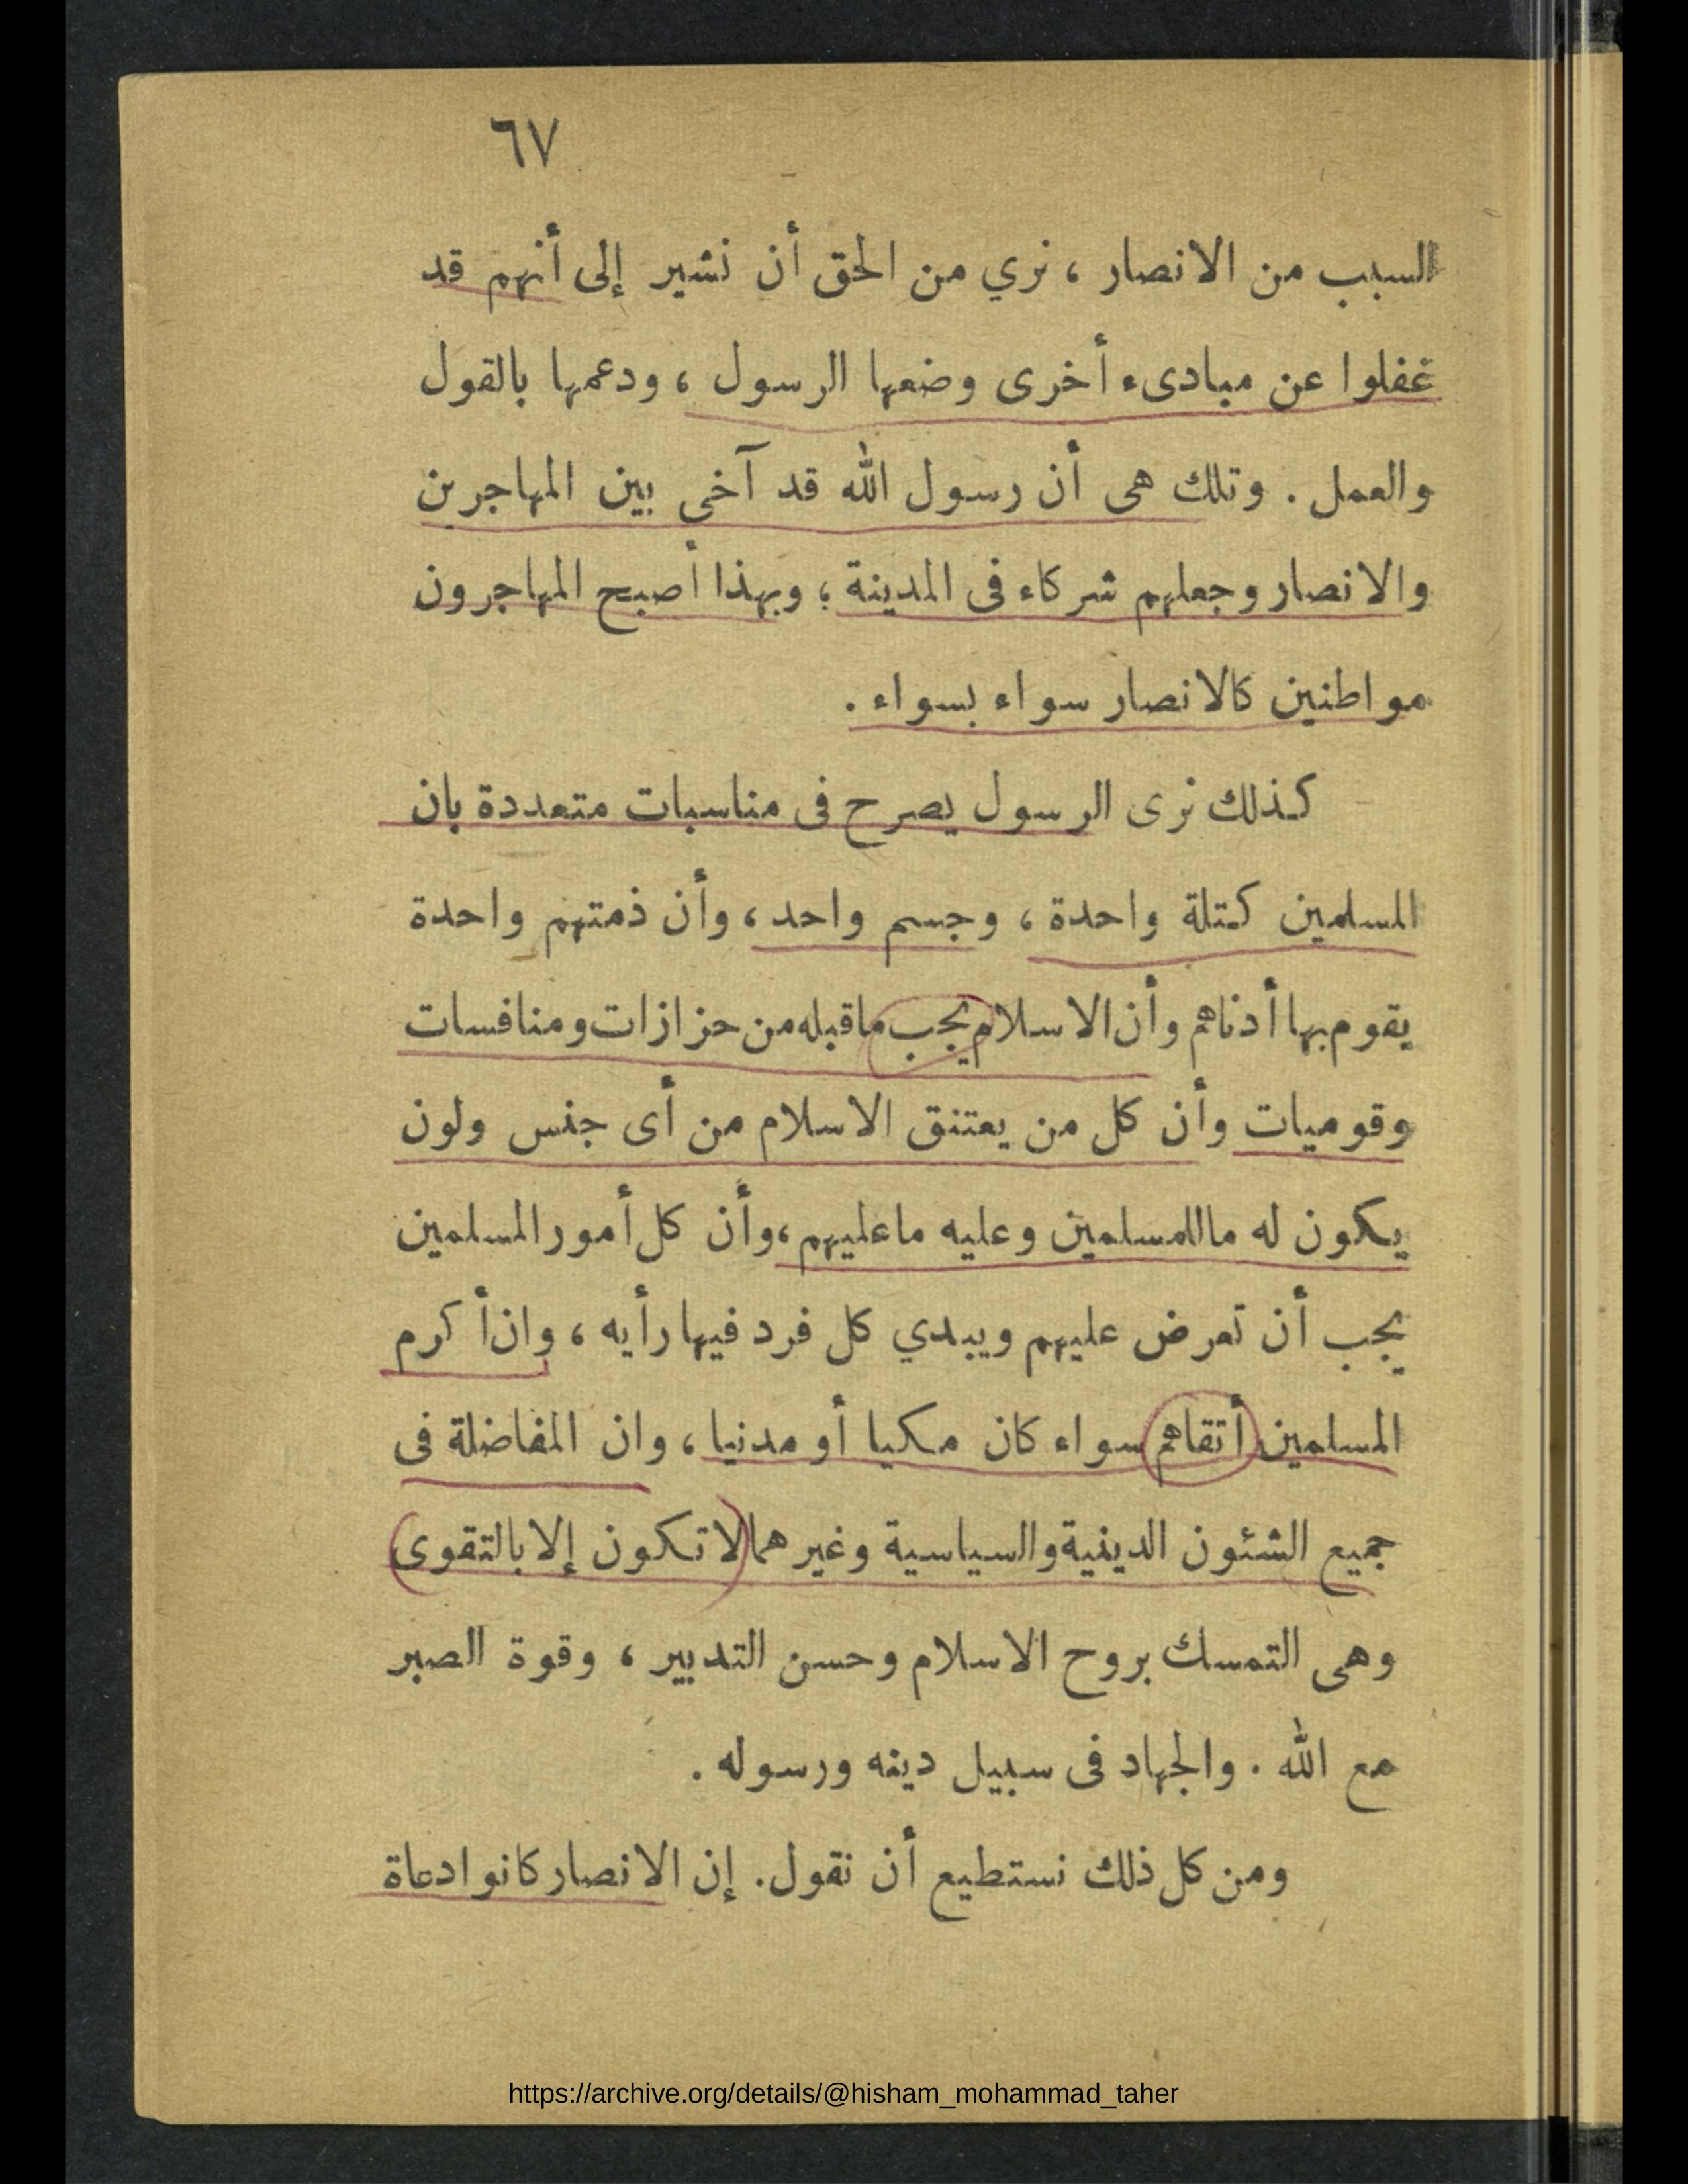 ٦٧
السبب من الانصار ، نري من الحق أن نشير إلى أنهم قد
غفلوا عن مبادىء أخرى وضعها الرسول ، ودعمها بالقول
والعمل . وتلك هى أن رسول الله قد آخى بين المهاجرين
والانصار وجعلهم شركاء فى المدينة ؛ وبهذا أصبح المهاجرون
مواطنين كالانصار سواء بسواء .
كذلك نرى الرسول يصرح فى مناسبات متعددة بان
المسلمين كتلة واحدة ، وجسم واحد ، وأن ذمتهم واحدة
يقوم بها أدناهم وأن الاسلام يجب ماقبله من حزازات ومنافسات
وقوميات وأن كل من يعتنق الاسلام من أى جنس ولون
يكون له ماللمسلمين وعليه ماعليهم ، وأن كل أمور المسلمين
يجب أن تعرض عليهم ويبدي كل فرد فيها رأيه ، وان أكرم
المسلمين أتقاهم سواء كان مكيا أو مدنيا ، وان المفاضلة فى
جميع الشئون الدينية والسياسية وغيرهما لا تكون إلا بالتقوى
وهى التمسك بروح الاسلام وحسن التدبير ، وقوة الصبر
مع الله . والجهاد فى سبيل دينه ورسوله .
ومن كل ذلك نستطيع أن نقول. إن الانصار كانوا دعاة
https://archive.org/details/@hisham_mohammad_taher